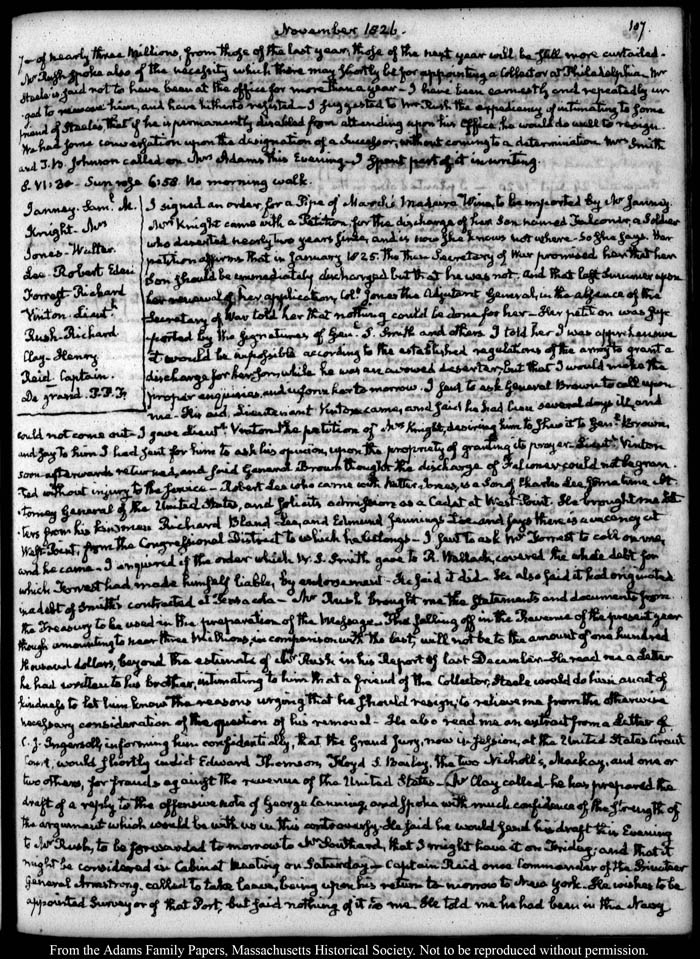 November 1826.
107.
7- of nearly three Millions, from those of the last year, those of the next year will be still more curtailed-
Mr Rush spoke also of the necessity which there may shortly be for appointing a Collector at Philadelphia. Mr
Steele is said not to have been at the office for more than a year- I have been earnestly and repeatedly ur-
-ged to remove him, and have hitherto resisted- I suggested to Mr Rush the expediency of intimating to some
friend of Steele's, that if he is permanently disabled from attending upon his Office, he would do well to resign.
We had some conversation upon the designation of a Successor, without coming to a determination. Mrs Smith
and T. B. Johnson called on Mrs Adams this Evening- I spent part of it in writing.
8. VI:30- Sun rose 6:58. No morning walk.
Janney. Saml. M.
Knight- Mrs
Jones- Walter.
Lee- Robert Eden
Forrest- Richard
Vinton- Lieutt.
Rush- Richard
Clay- Henry
Reid Captain.
De grand. P.P.F.
I signed an order, for a Pipe of March's Madeira Wine, to be imported by Mr Janney.
Mrs Knight came with a Petition, for the discharge of her Son named Falconer, a Soldier
who deserted nearly two years since, and is now she knows not where- So she says. Her
petition affirms that in January 1825. the then Secretary of War promised her that her
Son should be immediately discharged but that he was not. And that last Summer upon
her renewal of her application, Coll. Jones the Adjutant General, in the absence of the
Secretary of War told her that nothing could be done for her- Her petition was sup-
-ported by the signatures of Genl. S. Smith and others. I told her I was apprehensive
it would be impossible according to the established regulations of the army to grant a
discharge for her Son, while he was an avowed deserter, but that I would make the
proper enquiries, and inform her to morrow. I sent to ask General Brown to call upon
me- His aid, Lieutenant Vinton came, and said he had been several days ill, and
could not come out- I gave Lieutt. Vinton the petition of Mrs Knight, desiring him to shew it to Genl. Brown,
and say to him I had sent for him to ask his opinion, upon the propriety of granting its prayer- Lieutt. Vinton
soon afterwards returned, and said General Brown thought the discharge of Falconer could not be gran-
ted without injury to the service- Robert Lee who came with Walter Jones, is a Son of Charles Lee some time At-
torney General of the United States, and solicits admission as a Cadet at West-Point. He brought me let-
-ters from his kinsmen Richard Bland Lee, and Edmund Jennings Lee and says there is a vacancy at
West-Point, from the Congressional District to which he belongs- I sent to ask Mr Forrest to call on me,
and he came- I enquired if the order which W. S. Smith gave to R. Wallack, covered the whole debt for
which Forrest had made himself liable, by endorsement- He said it did- He also said it had originated
in a debt of Smith's contracted at Pensacola- Mr Rush brought me the Statements and documents from
the Treasury to be used in the preparation of the Message. The falling off in the Revenue of the present year
though amounting to near three Millions, in comparison with the last, will not be to the amount of one hundred
thousand dollars, beyond the estimate of Mr Rush in his Report of last December- He read me a Letter
he had written to his brother, intimating to him that a friend of the Collector, Steele would do him an act of
kindness to let him know the reasons urging that he should resign, to relieve me from the otherwise
necessary consideration of the question of his removal- He also read me an extract from a letter of
C. J. Ingersoll, informing him confidentially, that the Grand Jury, now in Session, at the United States Circuit
Court, would shortly indict Edward Thomson, Floyd S. Bailey, the two Nicholls, Mackay, and one or
two others, for frauds against the revenue of the United States- Mr Clay called- he has prepared the
draft of a reply to the offensive note of George Canning, and spoke with much confidence of the strength of
the argument which would be with us in this controversy. He said he would send his draft this Evening
to Mr Rush, to be forwarded to morrow to Mr Southard, that I might have it on Friday; and that it
might be considered in Cabinet Meeting on Saturday- Captain Reid once Commander of the Privateer
General Armstrong, called to take leave, being upon his return to morrow to New York- He wishes to be
appointed Surveyor of that Port, but said nothing of it to me. He told me he had been in the Navy
From the Adams Family Papers, Massachusetts Historical Society. Not to be reproduced without permission.